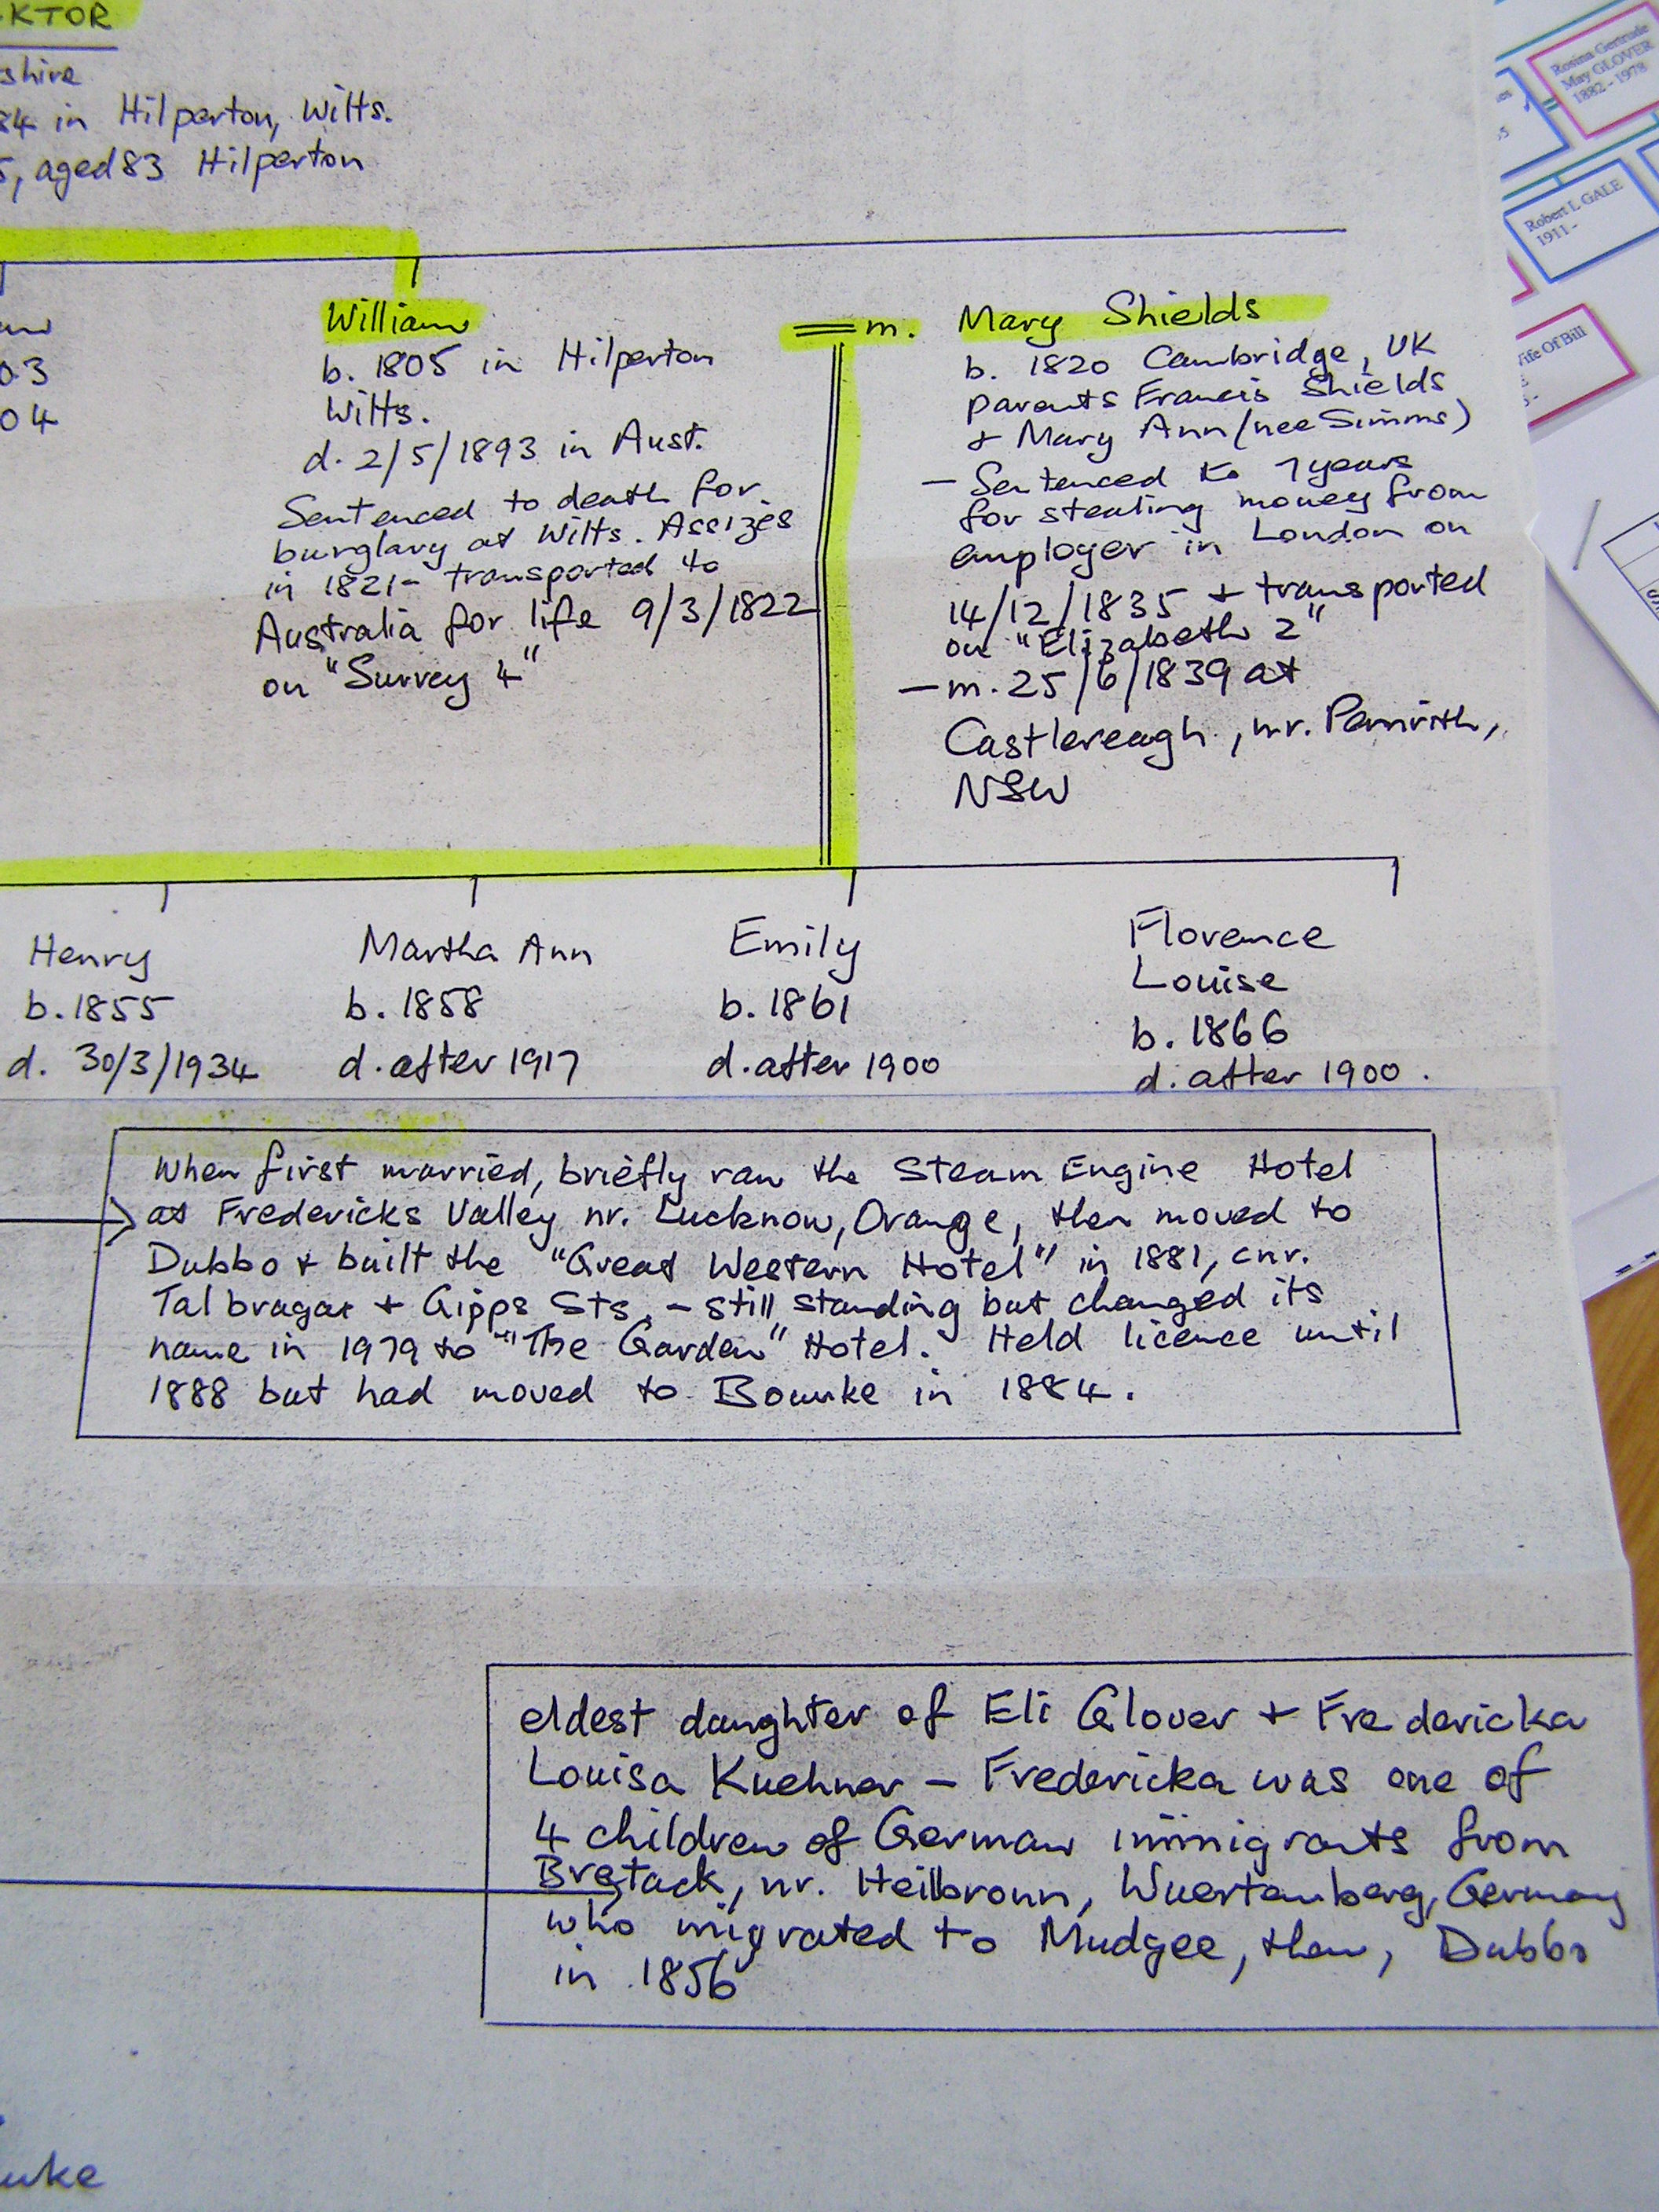 KTOR
shire
84 in Hilperton, Wilts.
5, aged 83 Hilperton
03
04
William
b. 1805 in Hilperton
Wilts.
d. 2/5/1893 in Aust.
Sentenced to death for
burglary at Wilts. Assizes
in 1821 - transported to
Australia for life 9/3/1822
on "Surrey 4"
= m. Mary Shields
b. 1820 Cambridge, UK
parents Francis Shields
+ Mary Ann (nee Simms)
- Sentenced to 7 years
for stealing money from
employer in London on
14/12/1835 + transported
on "Elizabeth 2"
- m. 25/6/1839 at
Castlereagh, nr. Penrith,
NSW
Henry
b. 1855
d. 30/3/1934
Martha Ann
b. 1858
d. after 1917
Emily
b. 1861
d. after 1900
Florence
Louise
b. 1866
d. after 1900.
When first married, briefly ran the Steam Engine Hotel
at Fredericks Valley nr. Lucknow, Orange, then moved to
Dubbo + built the "Great Western Hotel" in 1881, cnr.
Talbragar + Gipps Sts. - still standing but changed its
name in 1979 to "The Garden" Hotel. Held licence until
1888 but had moved to Bourke in 1884.
eldest daughter of Eli Glover + Fredericka
Louisa Kuehner - Fredericka was one of
4 children of German immigrants from
Bretack, nr. Heilbronn, Wuertemberg, Germany
who migrated to Mudgee, then, Dubbo
in 1856
uke
Rosina Gertrude
May GLOVER
1882 - 1978
Robert L GALE
1911 -
Wife Of Bill